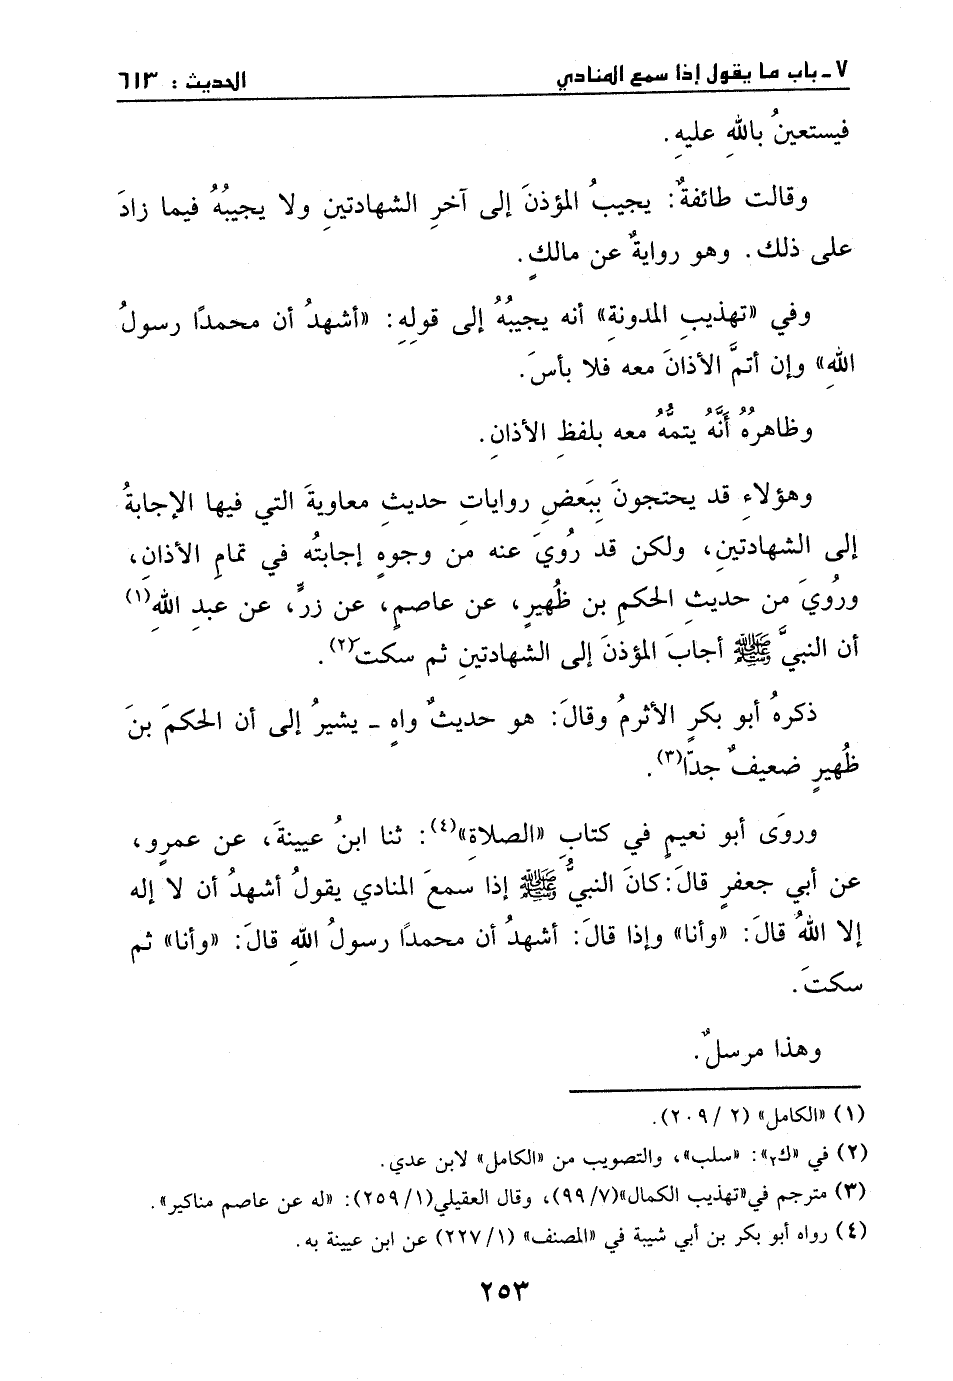 ٧ـ باب ما يقول إذا سمع المنادي
الحديث : ٦١٣
فيستعينُ باللهِ عليهِ.
وقالت طائفةٌ: يجيبُ المؤذنَ إلى آخرِ الشهادتينِ ولا يجيبُهُ فيما زادَ
على ذلك. وهو روايةٌ عن مالكٍ.
وفي «تهذيبِ المدونةِ» أنه يجيبُهُ إلى قولِهِ: «أشهدُ أن محمدًا رسولُ
اللهِ» وإن أتمَّ الأذانَ معه فلا بأسَ.
وظاهرُهُ أَنَّهُ يتمُّهُ معه بلفظِ الأذانِ.
وهؤلاءِ قد يحتجونَ بِبَعضِ رواياتِ حديثِ معاويةَ التي فيها الإجابةُ
إلى الشهادتينِ، ولكن قد رُويَ عنه من وجوهٍ إجابتُه في تمامِ الأذانِ،
ورُويَ من حديثِ الحكمِ بن ظُهيرٍ، عن عاصمٍ، عن زرٍّ، عن عبدِ اللهِ(١)
أن النبيَّ ﷺ أجابَ المؤذنَ إلى الشهادتينِ ثم سكتَ(٢).
ذكرهُ أبو بكرٍ الأثرمُ وقالَ: هو حديثٌ واهٍ ـ يشيرُ إلى أن الحكمَ بنَ
ظُهيرٍ ضعيفٌ جدّا(٣).
وروَى أبو نعيمٍ في كتابِ «الصلاةِ»(٤): ثنا ابنُ عيينةَ، عن عمرٍو،
عن أبي جعفرٍ قالَ: كانَ النبيُّ ﷺ إذا سمعَ المنادي يقولُ أشهدُ أن لا إله
إلا اللهُ قالَ: «وأنا» وإذا قالَ: أشهدُ أن محمدًا رسولُ اللهِ قالَ: «وأنا» ثم
سكتَ.
وهذا مرسلٌ.
(١) «الكامل» (٢ / ٢٠٩).
(٢) في «ك٢»: «سلب»، والتصويب من «الكامل» لابن عدي.
(٣) مترجم في«تهذيب الكمال»(٧/ ٩٩)، وقال العقيلي(١/ ٢٥٩): «له عن عاصم مناكير».
(٤) رواه أبو بكر بن أبي شيبة في «المصنف» (١/ ٢٢٧) عن ابن عيينة به.
٢٥٣